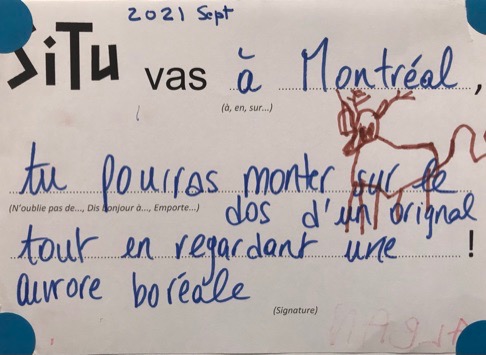 2021 Sept
SiTu vas à Montréal,
(à, en, sur...)
tu pourras monter sur le
(N'oublie pas de..., Dis bonjour à..., Emporte...)
dos d'un orignal
tout en regardant une !
aurore boréale
(Signature)